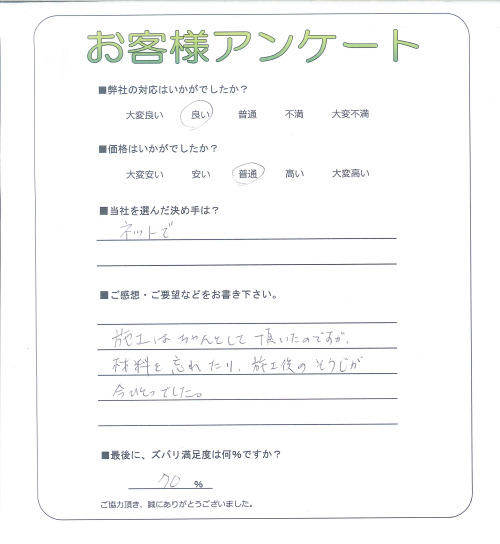 お客様アンケート
■弊社の対応はいかがでしたか？
大変良い 良い 普通 不満 大変不満
■価格はいかがでしたか？
大変安い 安い 普通 高い 大変高い
■当社を選んだ決め手は？
ネットで
■ご感想・ご要望などをお書き下さい。
施工はちゃんとして頂いたのですが、
材料を忘れたり、施工後のそうじが
今ひとつでした。
■最後に、ズバリ満足度は何％ですか？
70 ％
ご協力頂き、誠にありがとうございました。